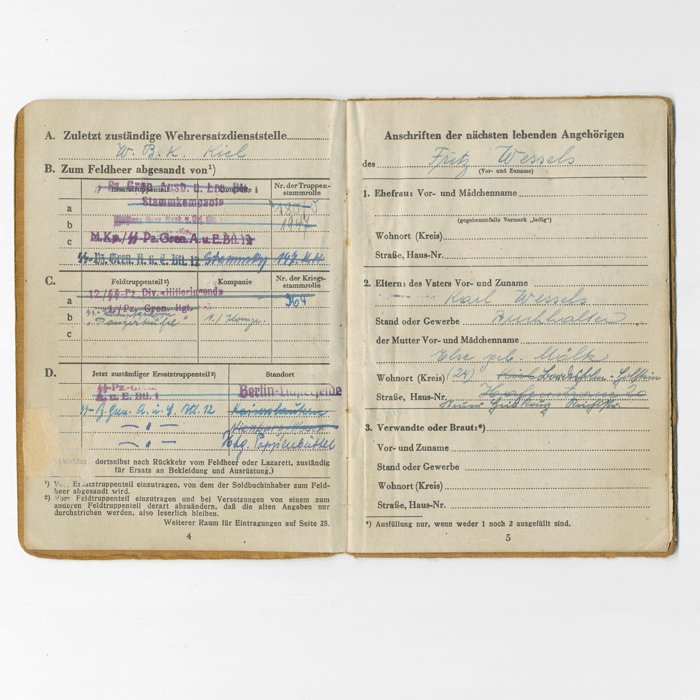 A. Zuletzt zuständige Wehrersatzdienststelle
W. B. K. Kiel
B. Zum Feldheer abgesandt von¹)
Kompanie
Nr. der Truppen-
stammrolle
a
Stammkompanie
b
c
M.Kp./SS-Pz.Gren.A.u.E.Btl. 12
SS-Pz. Gren. A. u. E. Btl. 12
C.
Feldtruppenteil²)
Kompanie
Nr. der Kriegs-
stammrolle
a
12/SS-Pz. Div. „Hitlerjugend
364
b
c
D.
Jetzt zuständiger Ersatztruppenteil²)
Standort
SS-Pz.-Gren.
A. u. E. Btl. 1
Berlin-Lichterfelde
A. u. E. Btl. 12
Kaiserslautern
— „ —
— „ —
dortselbst nach Rückkehr vom Feldheer oder Lazarett, zuständig
für Ersatz an Bekleidung und Ausrüstung.)
¹) Vom Ersatztruppenteil einzutragen, von dem der Soldbuchinhaber zum Feld-
heer abgesandt wird.
²) Vom Feldtruppenteil einzutragen und bei Versetzungen von einem zum
anderen Feldtruppenteil derart abzuändern, daß die alten Angaben nur
durchstrichen werden, also leserlich bleiben.
Weiterer Raum für Eintragungen auf Seite 23.
4
Anschriften der nächsten lebenden Angehörigen
des Fritz Wessels
(Vor- und Zuname)
1. Ehefrau: Vor- und Mädchenname
(gegebenenfalls Vermerk „ledig")
Wohnort (Kreis)
Straße, Haus-Nr.
2. Eltern: des Vaters Vor- und Zuname
Karl Wessels
Stand oder Gewerbe Buchhalter
der Mutter Vor- und Mädchenname
Else geb.
Wohnort (Kreis) (24)
Straße, Haus-Nr.
3. Verwandte oder Braut:*)
Vor- und Zuname
Stand oder Gewerbe
Wohnort (Kreis)
Straße, Haus-Nr.
*) Ausfüllung nur, wenn weder 1 noch 2 ausgefüllt sind.
5